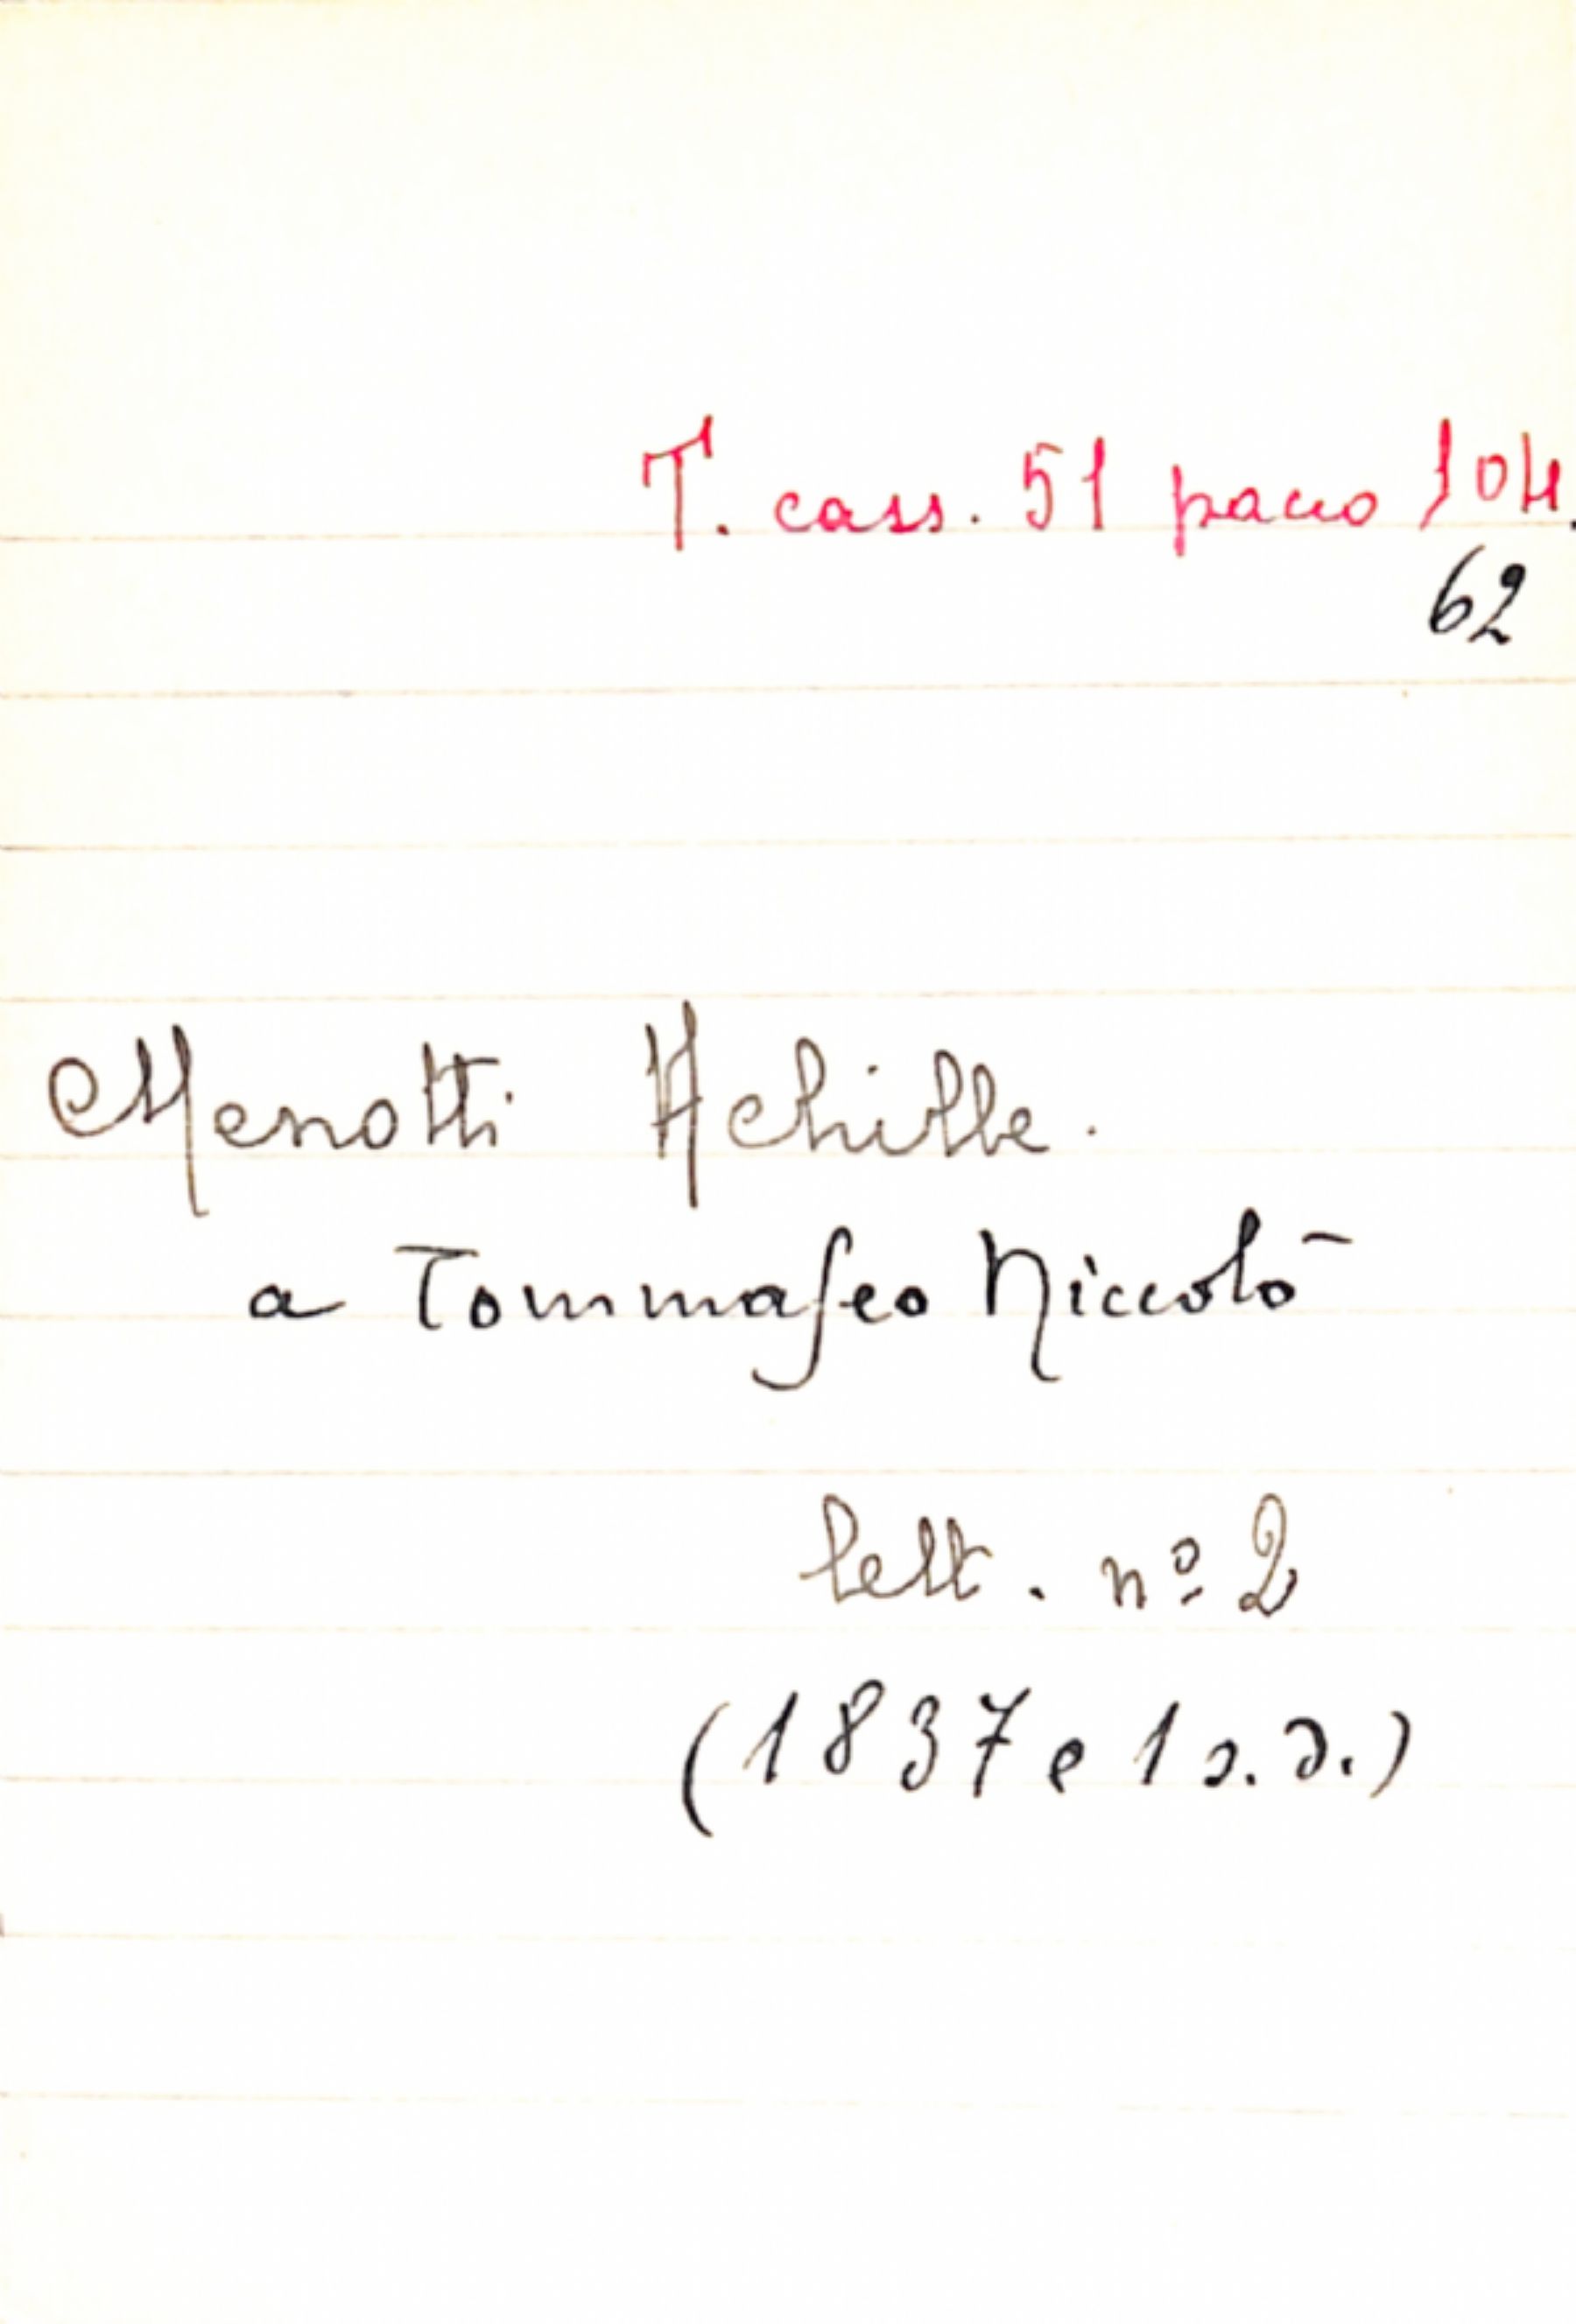 T. cass. 51 pacco 104.
62
Menotti Achille.
a Tommaseo Niccolò
lett. nº 2
(1837 e 1 s.d.)